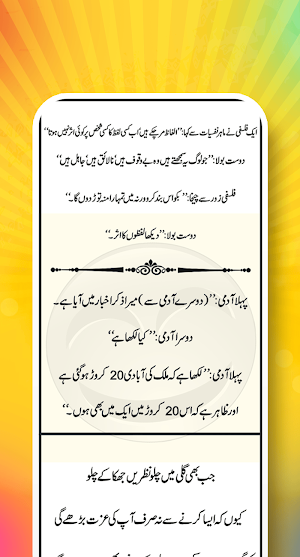 ایک فلسفی نے ماہر نفسیات سے کہا: ”الفاظ مر چکے ہیں اب کسی لفظ کا کسی شخص پر کوئی اثر نہیں ہوتا“
دوست بولا: ”جو لوگ یہ سمجھتے ہیں وہ بے وقوف ہیں نالائق ہیں جاہل ہیں“
فلسفی زور سے چیخا: ”بکواس بند کرو ورنہ میں تمہارا منہ توڑ دوں گا۔“
دوست بولا: ”دیکھا لفظوں کا اثر۔“
پہلا آدمی: ”(دوسرے آدمی سے) میرا ذکر اخبار میں آیا ہے۔
دوسرا آدمی: ”کیا لکھا ہے“
پہلا آدمی: ”لکھا ہے کہ ملک کی آبادی 20 کروڑ ہو گئی ہے
اور ظاہر ہے کہ اس 20 کروڑ میں ایک میں بھی ہوں۔“
جب بھی گلی میں چلو نظریں جھکا کے چلو
کیوں کہ ایسا کرنے سے نہ صرف آپ کی عزت بڑھے گی